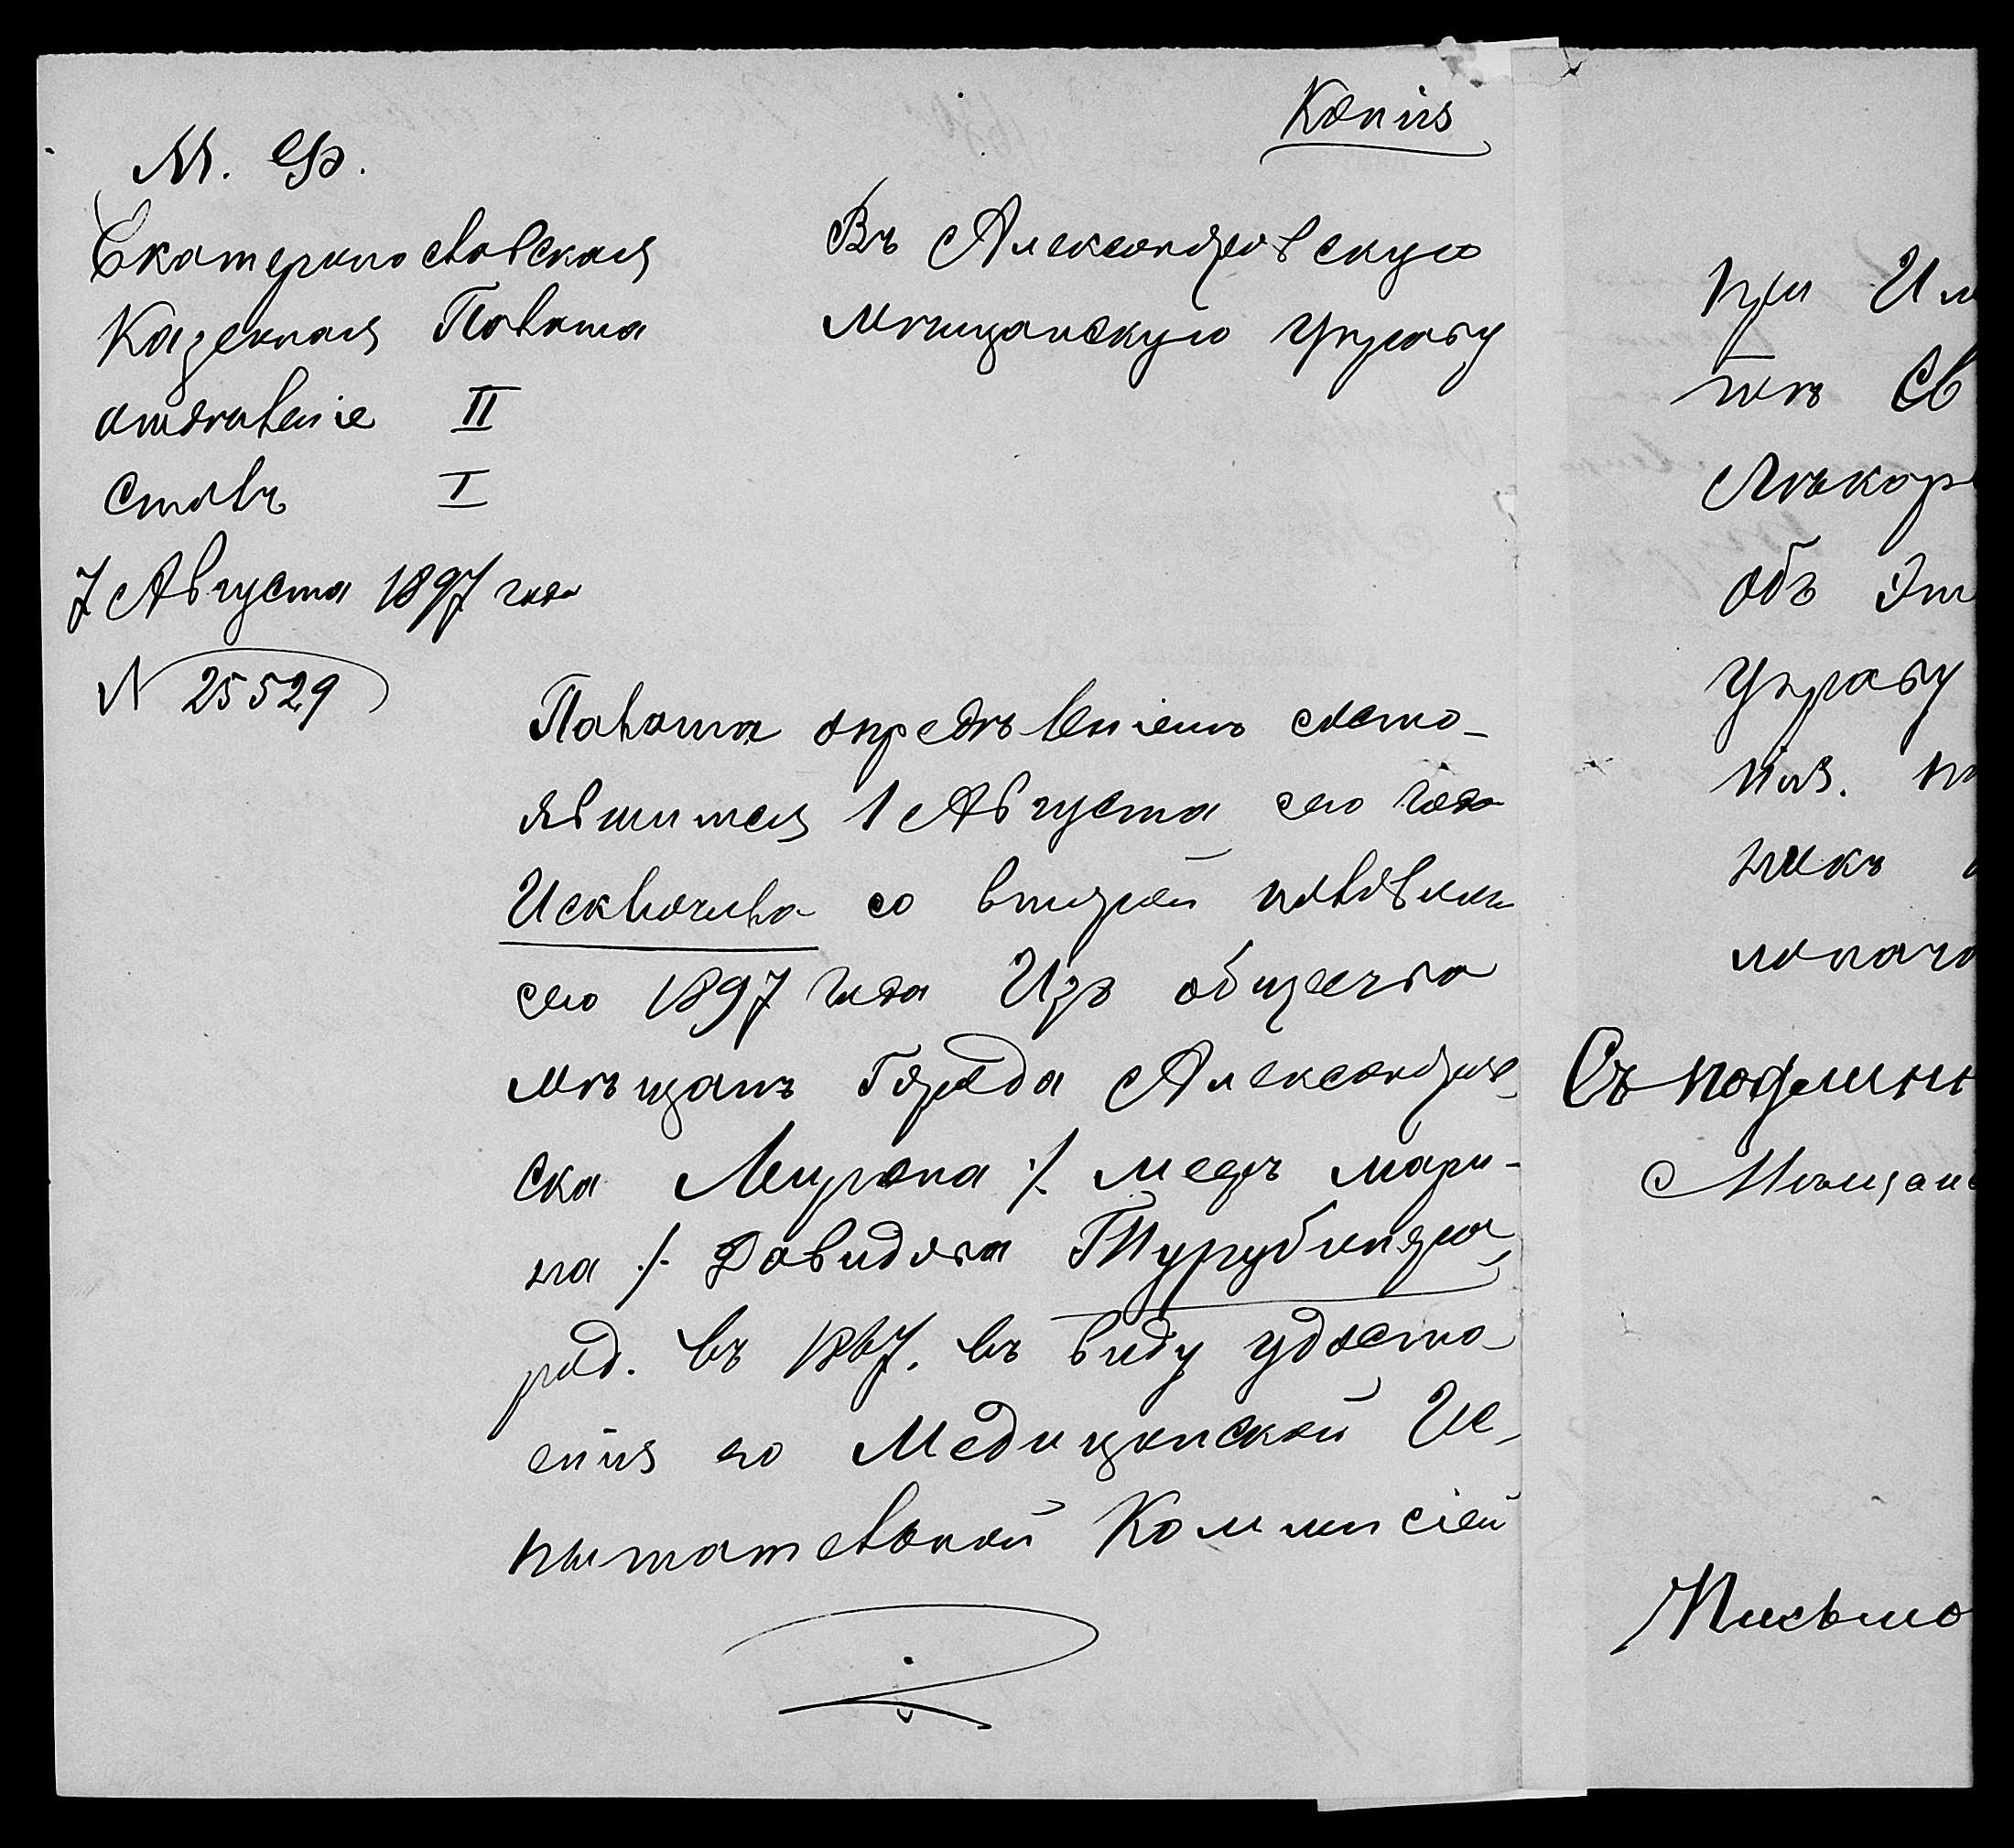 Копія
М. Ф.
Екатеринославская
Казенная Палата
отдѣленіе II
Столъ I
7 Августа 1897 года
N 25529
Въ Александровскую
Мѣщанскую Управу
Палата опредѣленіемъ состо-
явшимся 1 Августа сего года
Исключила со второй половины
сего 1897 года Изъ общества
мѣщанъ Города Александров-
ска Мирона ./. мееръ мари-
на ./. Давидова
род. въ 1867. въ виду удосто-
енія его Медицинской Ис-
пытательной Коммисіей
при Им
тетъ Св
Лѣкар
объ Эт
Управу
нія. по
никъ
мѣщан
Съ подлинн
Мѣщанс
Письмо